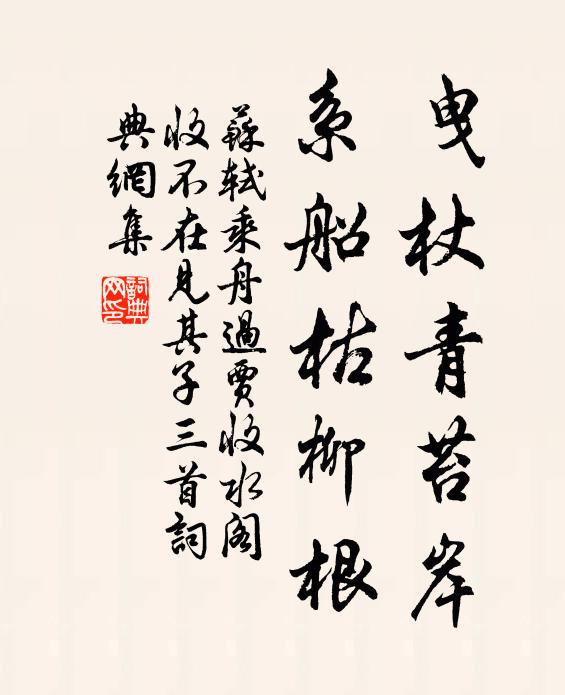 曳杖青苔岸
系船枯柳根
蘇軾乘舟過賈收水閣
收不在見其子三首詞
典網集
詞典网印